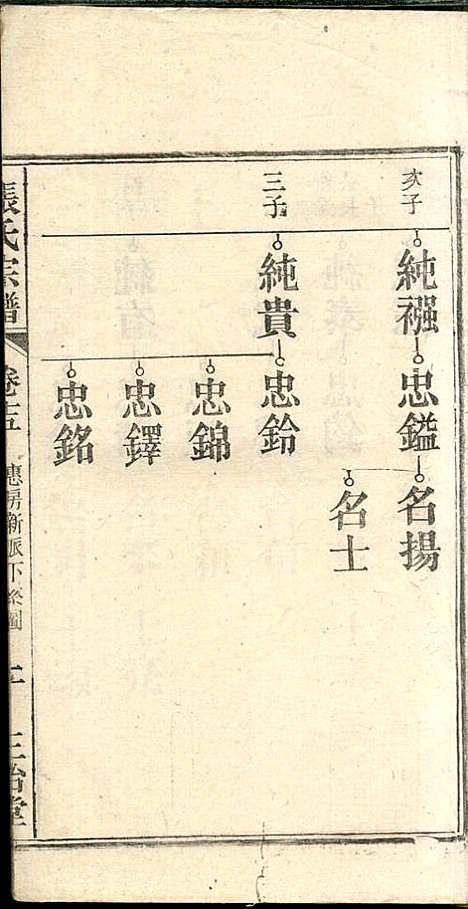 次子
純襁 忠鑑 名揚
名士
三子
純貴 忠鈴
忠錦
忠鐸
忠銘
張氏宗譜 卷十五 惠房新派下 三治堂